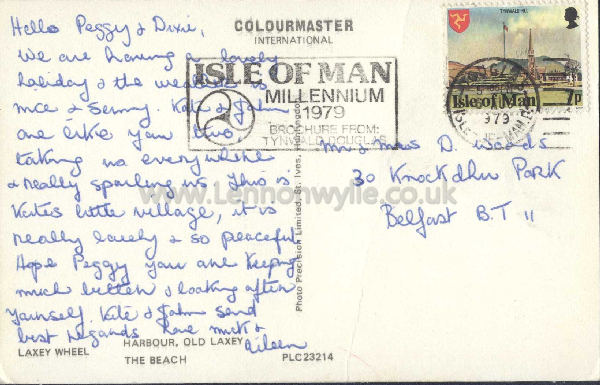 Hello Peggy & Dixie,
We are having a lovely
holiday & the weather is
nice & sunny. Kate & John
are like you two
taking us everywhere
& really spoiling us This is
Kates little village, it is
really lovely & so peaceful
Hope Peggy you are keeping
much better & looking after
yourself. Kate & John send
best regards love Mick &
Eileen
COLOURMASTER
INTERNATIONAL
ISLE OF MAN
MILLENNIUM
1979
BROCHURE FROM:
TYNWALD DOUGLAS
TYNWALD HILL
Isle of Man 7p
1979
ISLE OF MAN
Mr & Mrs D. Woods
30 Knockdhu Park
Belfast B.T 11
www.Lennonwylie.co.uk
Photo Precision Limited, St. Ives, Huntingdon
LAXEY WHEEL
HARBOUR, OLD LAXEY
THE BEACH
PLC23214